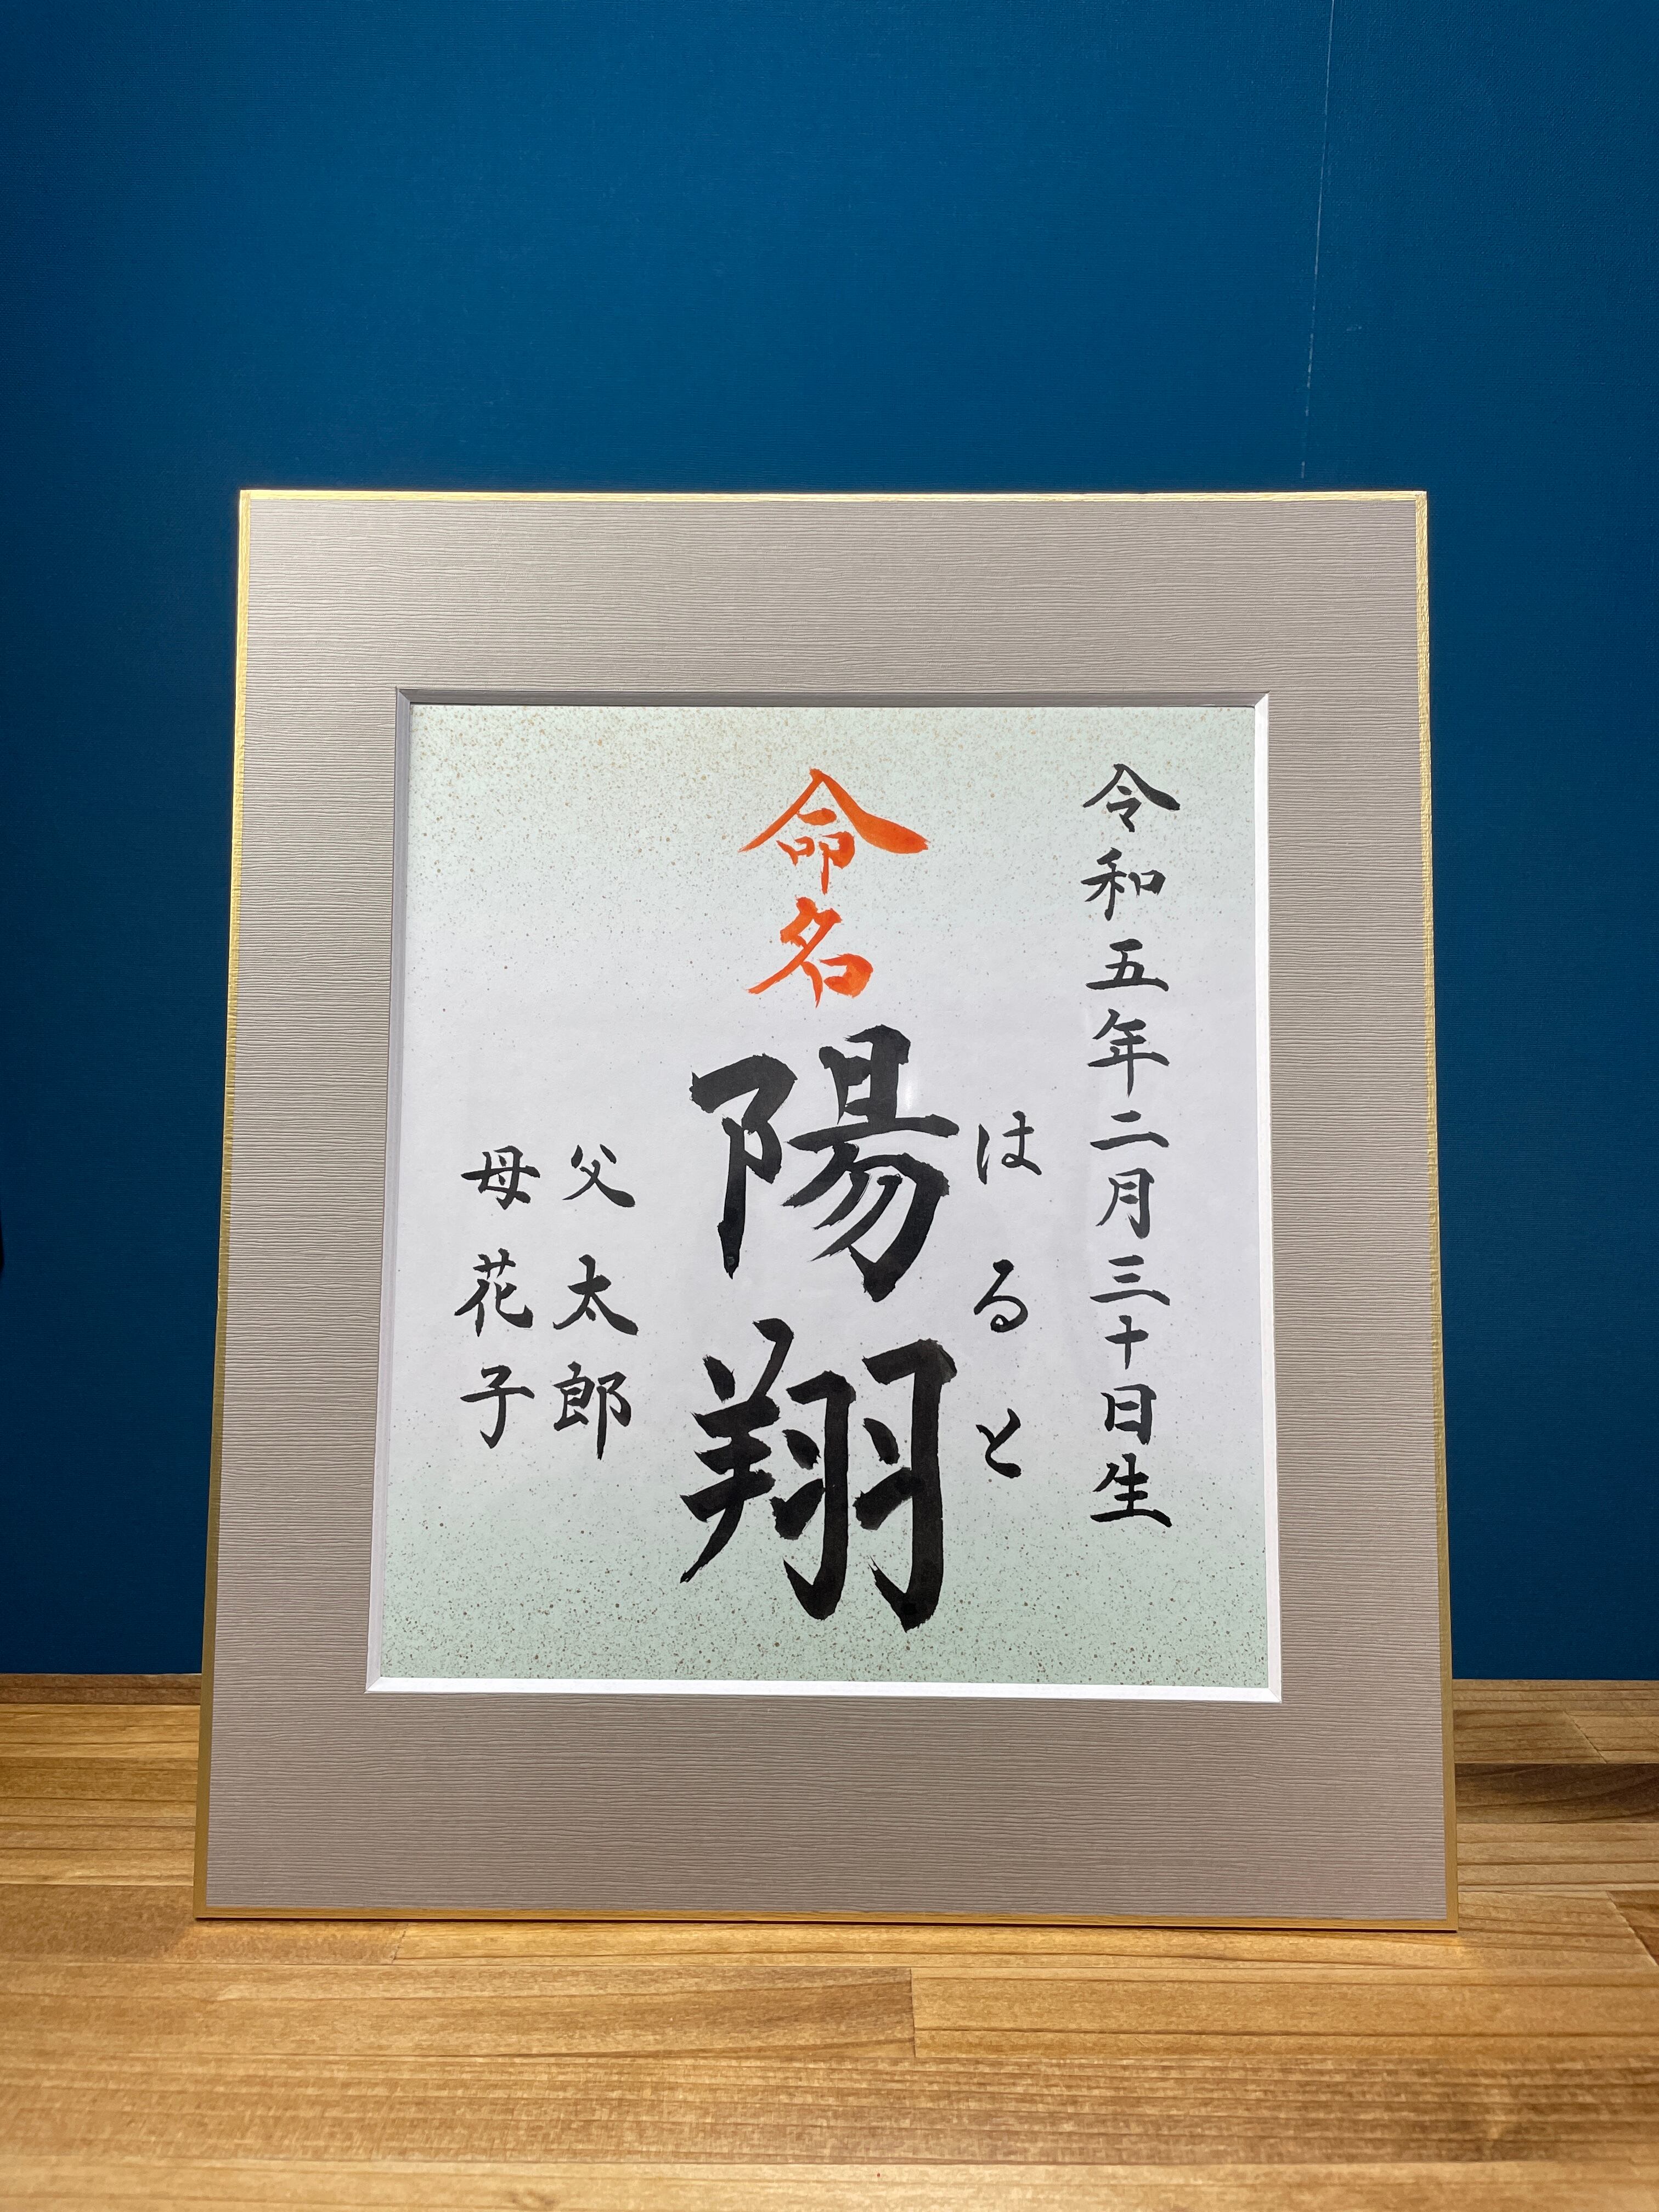 令和五年二月三十日生
はると
命名
陽翔
父 太郎
母 花子